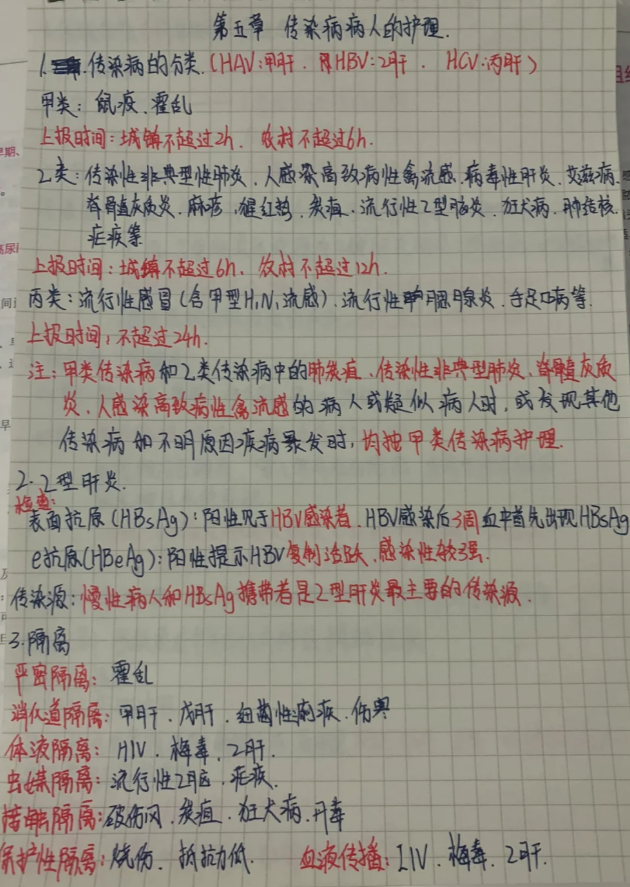 第五章 传染病病人的护理.
1. 传染病的分类.(HAV:甲肝. HBV:乙肝. HCV:丙肝)
甲类:鼠疫.霍乱
上报时间:城镇不超过2h. 农村不超过6h.
乙类:传染性非典型性肺炎.人感染高致病性禽流感.病毒性肝炎.艾滋病.
脊骨直灰质炎.麻疹.猩红热.炭疽.流行性乙型脑炎.狂犬病.肺结核.
疟疾等
上报时间:城镇不超过6h.农村不超过12h.
丙类:流行性感冒(含甲型H,N,流感).流行性腮腺炎.手足口病等.
上报时间:不超过24h.
注:甲类传染病和乙类传染病中的肺炭疽.传染性非典型肺炎.脊髓灰质
炎.人感染高致病性禽流感的病人或疑似病人时,或发现其他
传染病和不明原因疾病暴发时,均按甲类传染病护理.
2.乙型肝炎.
检查:
表面抗原(HBsAg):阳性见于HBV感染者.HBV感染后3周血中首先出现HBsAg
e抗原(HBeAg):阳性提示HBV复制活跃.感染性较强.
传染源:慢性病人和HBsAg携带者是乙型肝炎最主要的传染源.
3.隔离
严密隔离:霍乱
消化道隔离:甲肝.戊肝.细菌性痢疾.伤寒
体液隔离:HIV.梅毒.乙肝.
虫媒隔离:流行性乙脑.疟疾.
接触隔离:破伤风.炭疽.狂犬病.丹毒
保护性隔离:烧伤.抵抗力低. 血液传播:HIV.梅毒.乙肝.